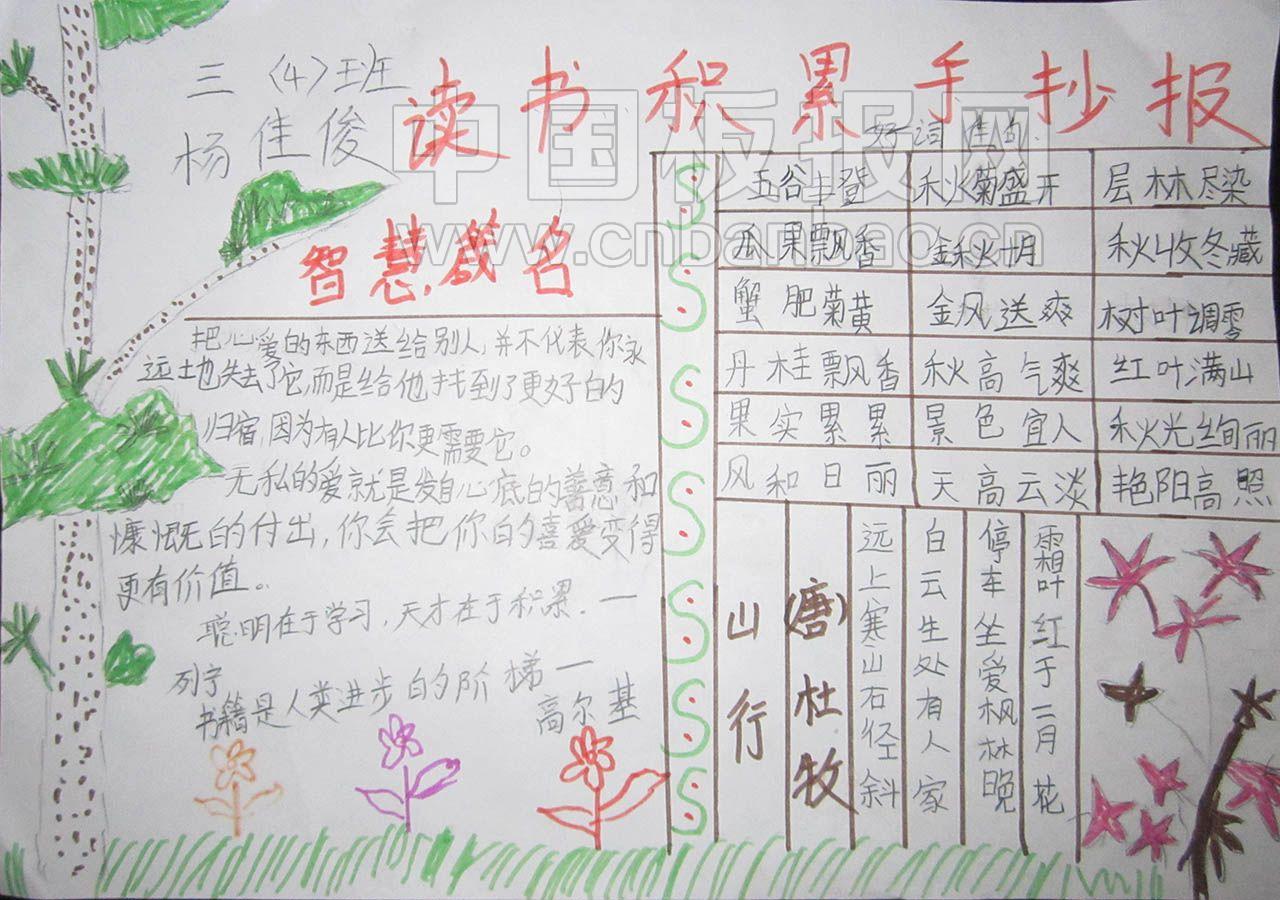 三（4）班
杨佳俊
读书积累手抄报
中国板报网
www.cnbanbao.cn
好词佳句
智慧箴名
把心爱的东西送给别人，并不代表你永
远土也失去了它，而是给他找到了更好的
归宿，因为有人比你更需要它。
无私的爱就是发自心底的善意和
慷慨的付出，你会把你的喜爱变得
更有价值。
聪明在于学习，天才在于积累．一
列宁
书籍是人类进步的阶梯一
高尔基
五谷丰登 秋菊盛开 层林尽染
瓜果飘香 金秋十月 秋收冬藏
蟹肥菊黄 金风送爽 树叶调零
丹桂飘香 秋高气爽 红叶满山
果实累累 景色宜人 秋光绚丽
风和日丽 天高云淡 艳阳高照
山行
（唐）杜牧
远上寒山石径斜
白云生处有人家
停车坐爱枫林晚
霜叶红于二月花